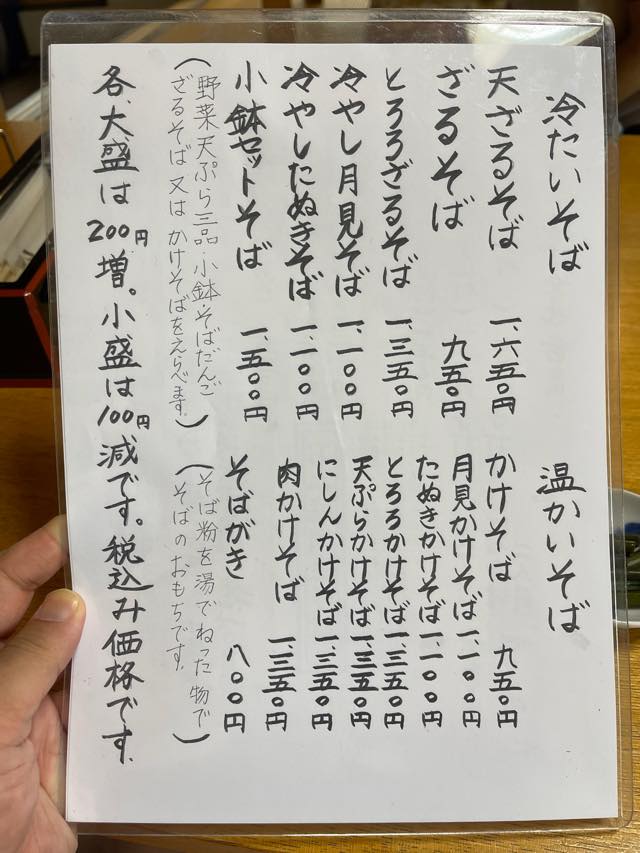 冷たいそば
天ざるそば 一、六五〇円
ざるそば 九五〇円
とろろざるそば 一、三五〇円
冷やし月見そば 一、一〇〇円
冷やしたぬきそば 一、一〇〇円
小鉢セットそば 一、五〇〇円
(野菜天ぷら三品・小鉢・そばだんご
ざるそば又はかけそばをえらべます。)
温かいそば
かけそば 九五〇円
月見かけそば 一、一〇〇円
たぬきかけそば 一、一〇〇円
とろろかけそば 一、三五〇円
天ぷらかけそば 一、三五〇円
にしんかけそば 一、三五〇円
肉かけそば 一、三五〇円
そばがき 八〇〇円
(そば粉を湯でねった物で
そばのおもちです。)
各、大盛は200円増。小盛は100円減です。税込み価格です.